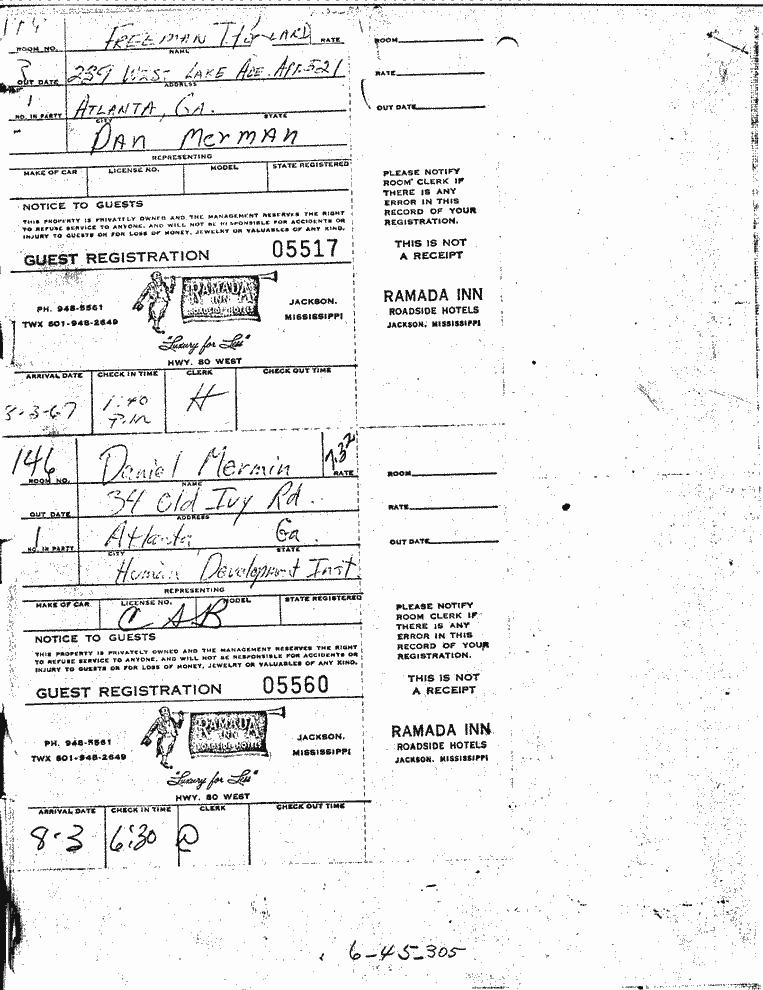 114
FREEMAN
ROOM NO. NAME RATE
239 WEST LAKE AVE. APT. 521
OUT DATE ADDRESS
1 ATLANTA, GA.
NO. IN PARTY CITY STATE
DAN MERMAN
REPRESENTING
MAKE OF CAR LICENSE NO. MODEL STATE REGISTERED
NOTICE TO GUESTS
THIS PROPERTY IS PRIVATELY OWNED AND THE MANAGEMENT RESERVES THE RIGHT
TO REFUSE SERVICE TO ANYONE, AND WILL NOT BE RESPONSIBLE FOR ACCIDENTS OR
INJURY TO GUESTS OR FOR LOSS OF MONEY, JEWELRY OR VALUABLES OF ANY KIND.
GUEST REGISTRATION 05517
PH. 948-5561
TWX 601-948-2649
RAMADA
INN
ROADSIDE HOTELS
JACKSON,
MISSISSIPPI
"Luxury for Less"
HWY. 80 WEST
ARRIVAL DATE CHECK IN TIME CLERK CHECK OUT TIME
8-3-67 1:40 P.M. H
ROOM
RATE
OUT DATE
PLEASE NOTIFY
ROOM CLERK IF
THERE IS ANY
ERROR IN THIS
RECORD OF YOUR
REGISTRATION.
THIS IS NOT
A RECEIPT
RAMADA INN
ROADSIDE HOTELS
JACKSON, MISSISSIPPI
146 Daniel Mermin
ROOM NO. NAME RATE
34 Old Ivy Rd.
OUT DATE ADDRESS
1 Atlanta, Ga.
NO. IN PARTY CITY STATE
Human Development Inst.
REPRESENTING
MAKE OF CAR LICENSE NO. MODEL STATE REGISTERED
CAB
NOTICE TO GUESTS
THIS PROPERTY IS PRIVATELY OWNED AND THE MANAGEMENT RESERVES THE RIGHT
TO REFUSE SERVICE TO ANYONE, AND WILL NOT BE RESPONSIBLE FOR ACCIDENTS OR
INJURY TO GUESTS OR FOR LOSS OF MONEY, JEWELRY OR VALUABLES OF ANY KIND.
GUEST REGISTRATION 05560
PH. 948-5561
TWX 601-948-2649
RAMADA
INN
ROADSIDE HOTELS
JACKSON,
MISSISSIPPI
"Luxury for Less"
HWY. 80 WEST
ARRIVAL DATE CHECK IN TIME CLERK CHECK OUT TIME
8-3 6:30
ROOM
RATE
OUT DATE
PLEASE NOTIFY
ROOM CLERK IF
THERE IS ANY
ERROR IN THIS
RECORD OF YOUR
REGISTRATION.
THIS IS NOT
A RECEIPT
RAMADA INN
ROADSIDE HOTELS
JACKSON, MISSISSIPPI
6-45-305